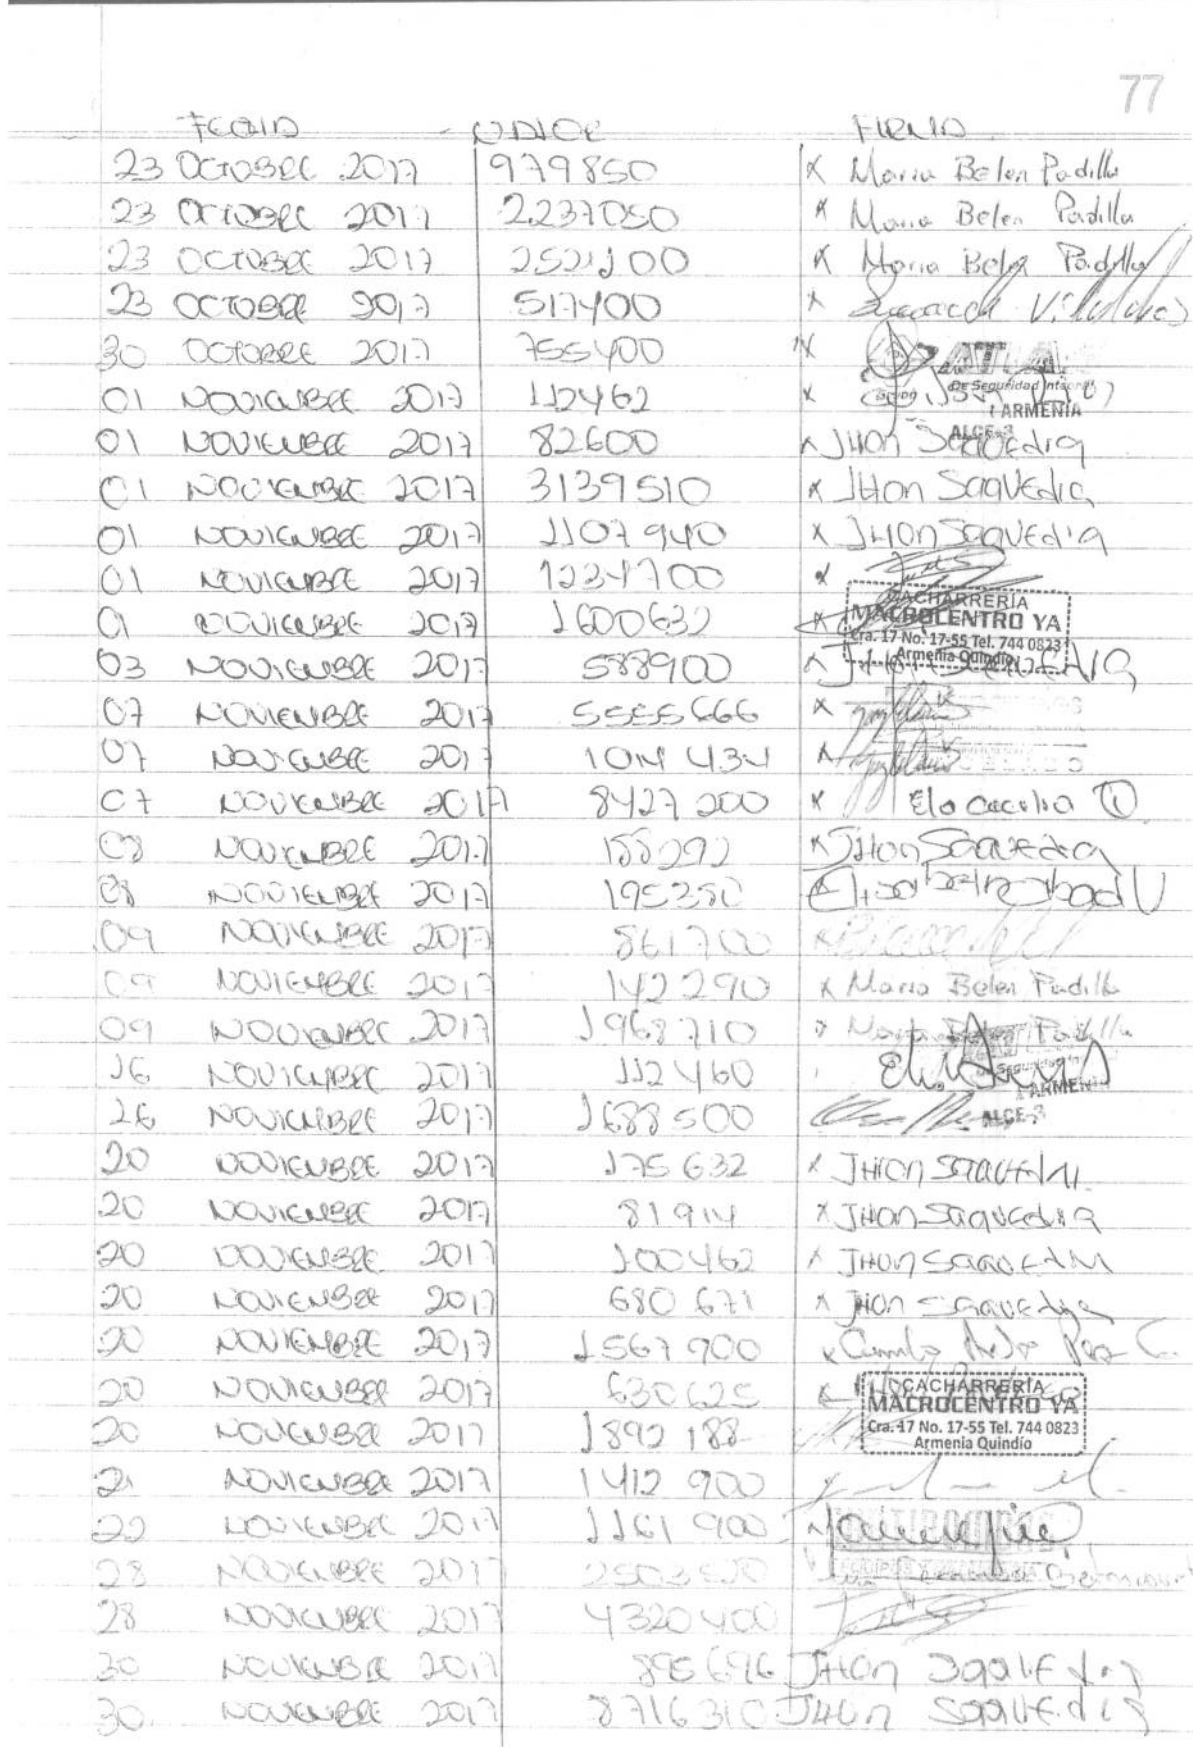 77
FECHA VALOR FIRMA
23 OCTUBRE 2017 979850 x Maria Belen Padilla
23 OCTUBRE 2017 2237050 x Maria Belen Padilla
23 OCTUBRE 2017 2521100 x Maria Belen Padilla
23 OCTUBRE 2017 517400 x
30 OCTUBRE 2017 755400 x
De Seguridad Integral
01 NOVIEMBRE 2017 112462 x
ARMENIA
ALCE-3
01 NOVIEMBRE 2017 82600 x JHon Saavedra
01 NOVIEMBRE 2017 3139510 x JHon Saavedra
01 NOVIEMBRE 2017 1107940 x JHon Saavedra
01 NOVIEMBRE 2017 x
CACHARRERÍA
01 NOVIEMBRE 2017 1600632 x
MACROCENTRO YA
Cra. 17 No. 17-55 Tel. 744 0823
Armenia Quindío
03 NOVIEMBRE 2017 588900 x
07 NOVIEMBRE 2017 5555666 x
07 NOVIEMBRE 2017 x
07 NOVIEMBRE 2017 8427200 x
08 NOVIEMBRE 2017 x JHon Saavedra
08 NOVIEMBRE 2017 195350 Elisabeth Abad U
09 NOVIEMBRE 2017 861700 x
09 NOVIEMBRE 2017 142290 x Maria Belen Padilla
09 NOVIEMBRE 2017 1968710 x Maria Belen Padilla
16 NOVIEMBRE 2017 112460
ARMENIA
ALCE-3
16 NOVIEMBRE 2017 1688500
20 NOVIEMBRE 2017 175632 x JHon Saavedra
20 NOVIEMBRE 2017 81914 x JHon Saavedra
20 NOVIEMBRE 2017 100462 x JHon Saavedra
20 NOVIEMBRE 2017 680671 x JHon Saavedra
20 NOVIEMBRE 2017 1567900 x
20 NOVIEMBRE 2017 630625 x
CACHARRERÍA
MACROCENTRO YA
20 NOVIEMBRE 2017 1892188
Cra. 17 No. 17-55 Tel. 744 0823
Armenia Quindío
21 NOVIEMBRE 2017 1412900
22 NOVIEMBRE 2017 1161900
28 NOVIEMBRE 2017
28 NOVIEMBRE 2017 4320400
30 NOVIEMBRE 2017 895696 JHon Saavedra
30 NOVIEMBRE 2017 8716310 JHon Saavedra